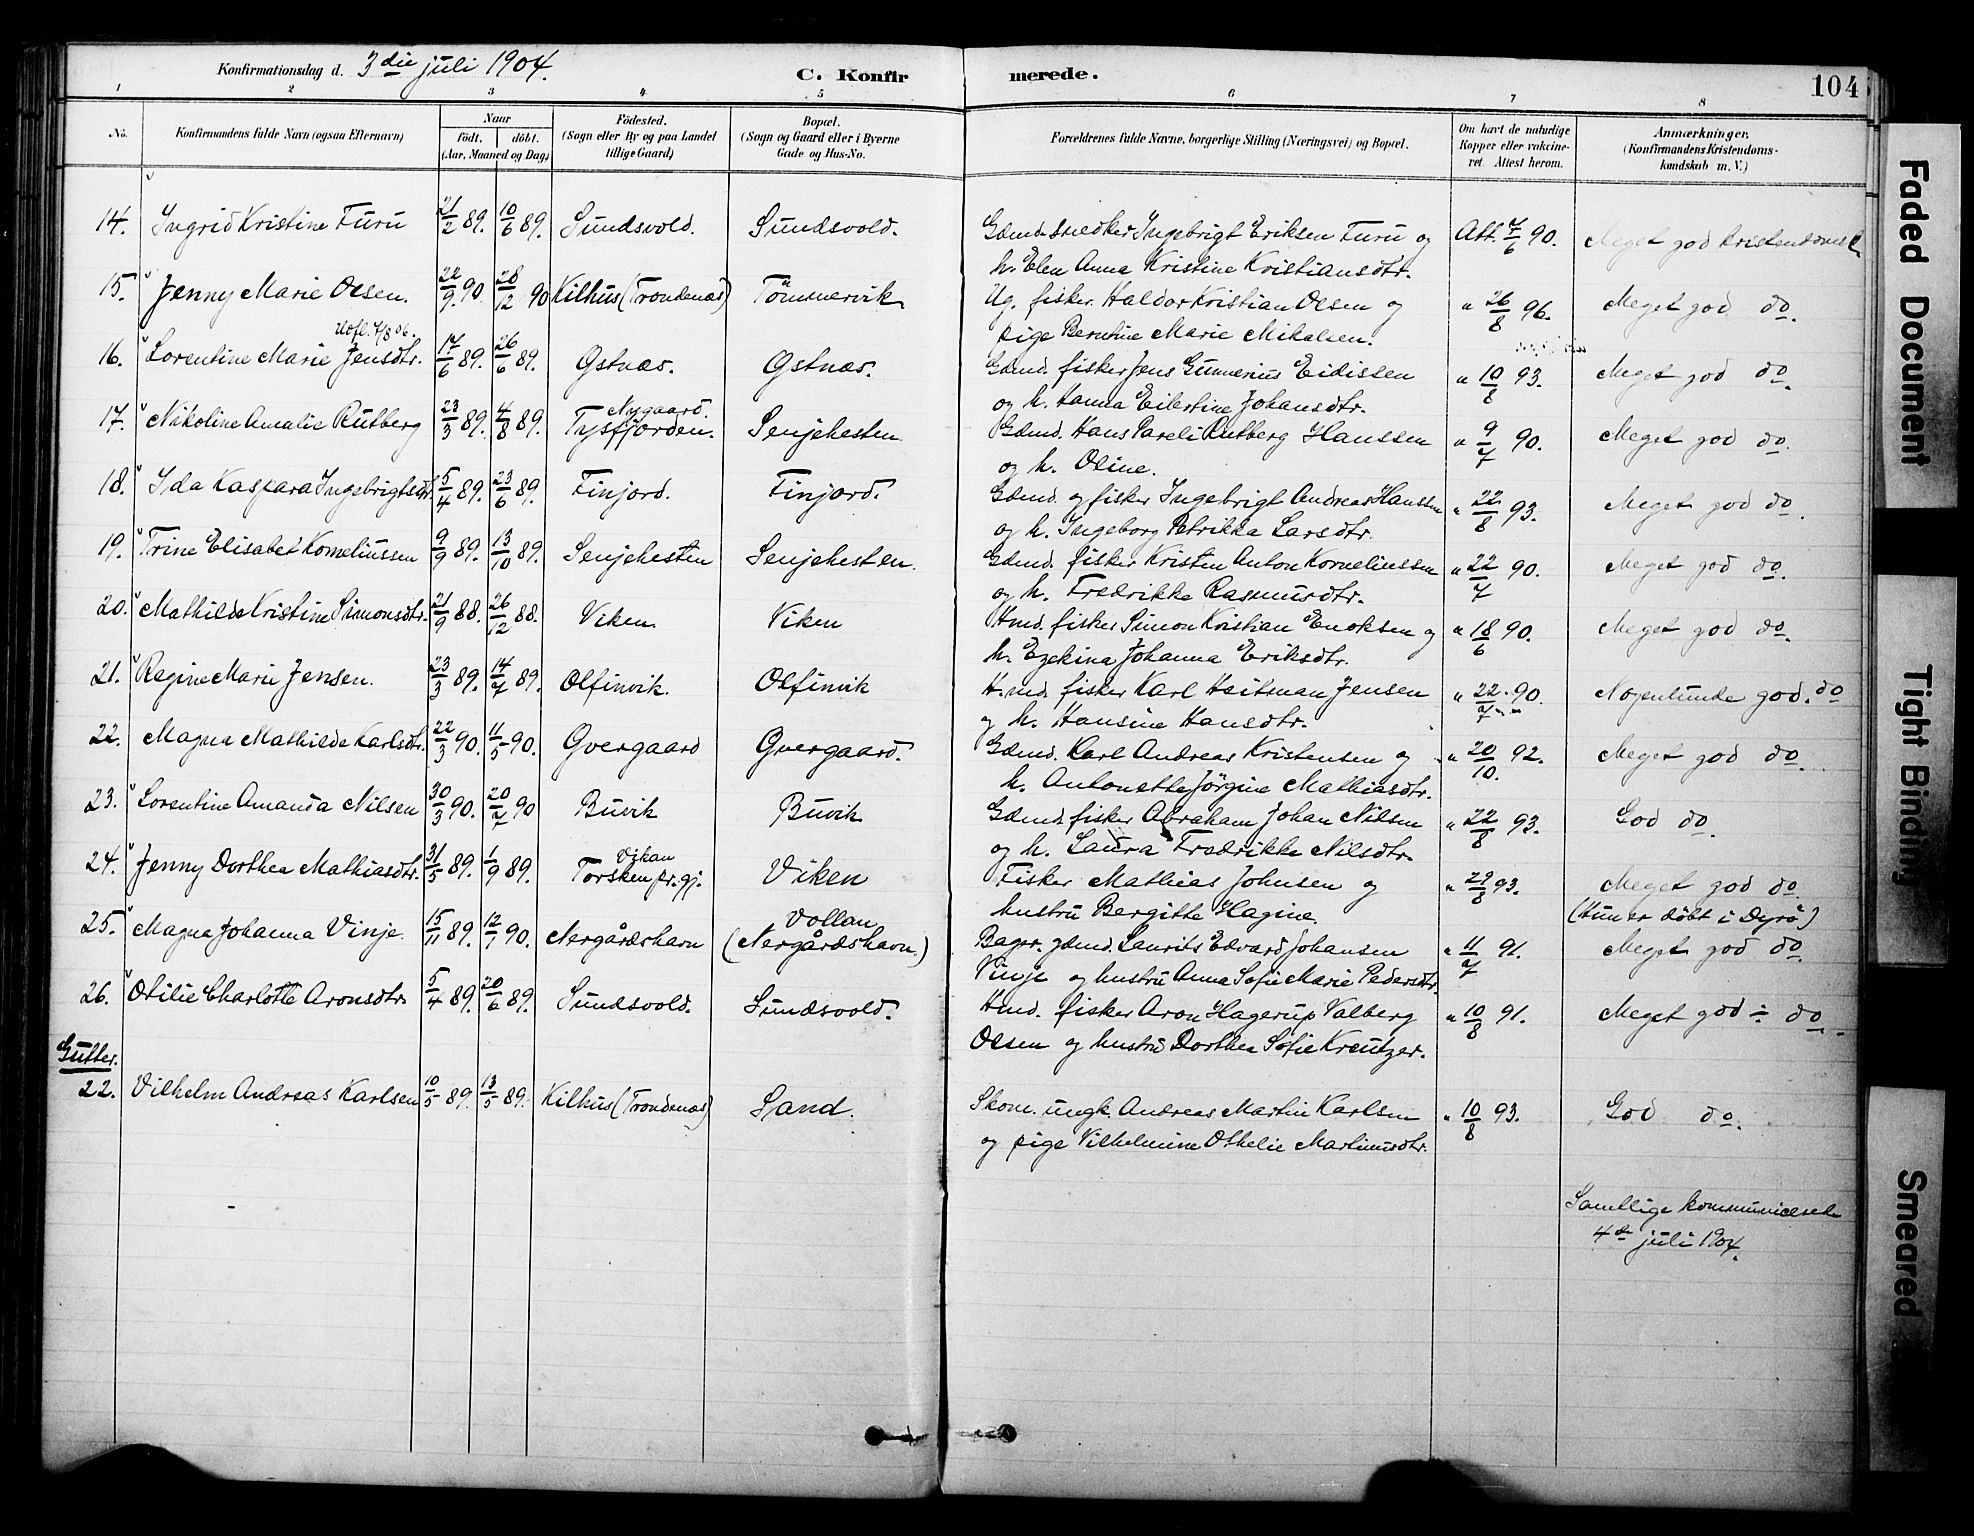 Konfirmationsdag d. 3die juli 1904.
C. Konfirmerede.
104
1 2 3 4 5 6 7 8
No. Konfirmandens fulde Navn (ogsaa Efternavn) Naar født. døbt. (Aar, Maaned og Dag) Fødested. (Sogn eller By og paa Landet tillige Gaard) Bopæl. (Sogn og Gaard eller i Byerne Gade og Hus-No. Forældrenes fulde Navne, borgerlige Stilling (Næringsvei) og Bopæl. Om havt de naturlige Kopper eller vaccineret. Attest herom. Anmærkninger. (Konfirmandens Kristendomskundskab m. V.)
14. Ingrid Kristine Furu 21/2 89. 10/6 89. Sundsvold. Sundsvold. Gdmd. snedker Ingebrigt Eriksen Furu og Att. 7/6 90. Meget god kristendomsk
h. Elen Anna Kristine Kristiansdtr.
15. Jenny Marie Olsen. 22/9 90 28/12 90 Kilhus (Trondenæs) Tömmervik Ug. fisker Haldor Kristian Olsen og " 26/8 96. Meget god do.
pige Berntine Marie Mikalsen.
Udfl. 7/8 06.
16. Lorentine Marie Jensdtr. 17/6 89. 26/6 89. Østnæs. Østnæs. Gdmd. fisker Jens Gunnerius Eidissen " 10/8 93. Meget god do.
og h. Hanna Eilertine Johansdtr.
17. Nikoline Amalie Rutberg 23/3 89. 4/8 89. Nygaard. Tysfjorden. Senjehesten Gdmd. Hans Pareli Rutberg Hanssen " 9/7 90. Meget god do.
og h. Oline.
18. Ida Kaspara Ingebrigtsdtr. 5/4 89. 23/6 89. Finjord. Finjord. Gdmd. og fisker Ingebrigt Andreas Hanssen " 22/8 93. Meget god do.
og h. Ingeborg Petrikka Larsdtr.
19. Trine Elisabet Korneliussen 9/9 89. 13/10 89. Senjehesten Senjehesten. Gdmd. fisker Kristen Anton Korneliussen " 22/7 90. Meget god do.
og h. Fredrikke Rasmusdtr.
20. Mathilde Kristine Simonsdtr. 21/9 88. 26/12 88. Viken. Viken Hmd. fisker Simon Kristian Enoksen og " 18/6 90. Meget god do.
h. Ezekina Johanna Eriksdtr.
21. Regine Marie Jensen. 23/3 89. 14/7 89. Olfinvik. Olfinvik Hmd. fisker Karl Heitman Jensen " 22/7 90. Nogenlunde god. do
og h. Hansine Hansdtr.
22. Magna Mathilde Karlsdtr. 22/3 90. 11/5 90. Øvergaard Øvergaard. Gdmd. Karl Andreas Kristensen og " 20/10. 92. Meget god do.
h. Antonette Jörgine Mathiasdtr.
23. Lorentine Amanda Nilsen 30/3 90. 20/7 90 Buvik Buvik Gdmd. fisker Abraham Johan Nilsen " 22/8 93. God do.
og h. Laura Fredrikke Nilsdtr.
24. Jenny Dorthea Mathiasdtr. 31/5 89. 1/9 89. Vikan Torsken pr.gj. Viken Fisker Mathias Johnsen og " 29/8 93. Meget god do
hustru Bergitte Hagine. (Hun er döbt i Dyrö)
25. Magna Johanna Vinje. 15/11 89. 12/1 90. Nergårdshavn Vollan (Nergårdshavn.) Bager. gdmd. Laurits Edvard Johansen " 11/7 91. Meget god do.
Vinje og hustru Anna Sofie Marie Pedersdtr.
26. Otilie Charlotte Aronsdtr. 5/4 89. 20/6 89. Sundsvold. Sundsvold. Hmd. fisker Aron Hagerup Valberg " 10/8 91. Meget god ÷ do.
Olsen og hustru Dorthea Sofie Kreutzer.
Gutter.
22. Vilhelm Andreas Karlsen 10/5 89. 13/5 89. Kilhus (Trondenæs) Sand. Skom. ungk. Andreas Martin Karlsen " 10/8 93. God do.
og pige Vilhelmine Othelie Martinusdtr.
Samtlige kommunicerede
4de juli 1904.
Faded Document
Tight Binding
Smeared